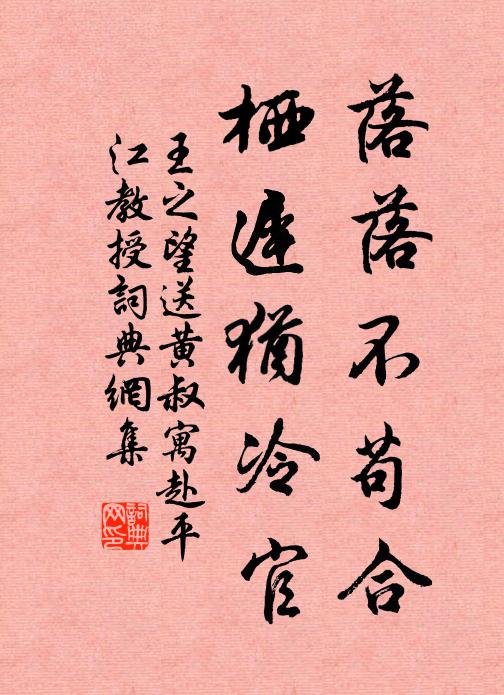 落落不苟合
栖遲猶冷官
王之望送黄叔寓赴平
江教授詞典網集
詞典網印